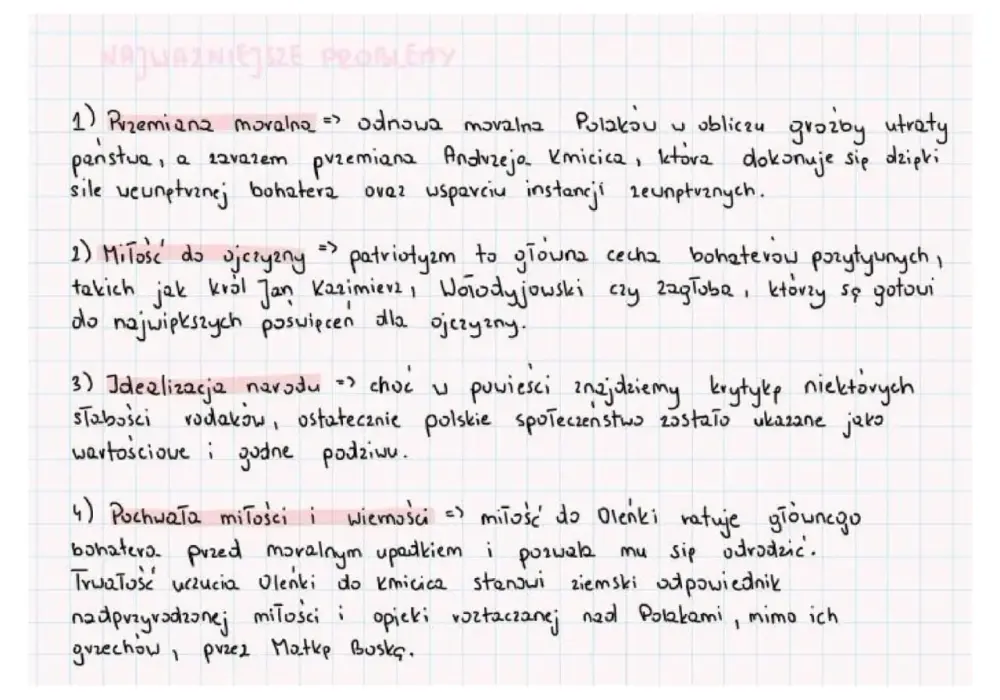 NAJWAŻNIEJSZE PROBLEMY
1) Przemiana moralna => odnowa moralna Polaków w obliczu groźby utraty
państwa, a zarazem przemiana Andrzeja Kmicica, która dokonuje się dzięki
sile wewnętrznej bohatera oraz wsparciu instancji zewnętrznych.
2) Miłość do ojczyzny => patriotyzm to główna cecha bohaterów pozytywnych,
takich jak król Jan Kazimierz, Wołodyjowski czy Zagłoba, którzy są gotowi
do największych poświęceń dla ojczyzny.
3) Idealizacja narodu => choć w powieści znajdziemy krytykę niektórych
słabości rodaków, ostatecznie polskie społeczeństwo zostało ukazane jako
wartościowe i godne podziwu.
4) Pochwała miłości i wierności => miłość do Oleńki ratuje głównego
bohatera przed moralnym upadkiem i pozwala mu się odrodzić.
Trwałość uczucia Oleńki do Kmicica stanowi ziemski odpowiednik
nadprzyrodzonej miłości i opieki roztaczanej nad Polakami, mimo ich
grzechów, przez Matkę Boską.